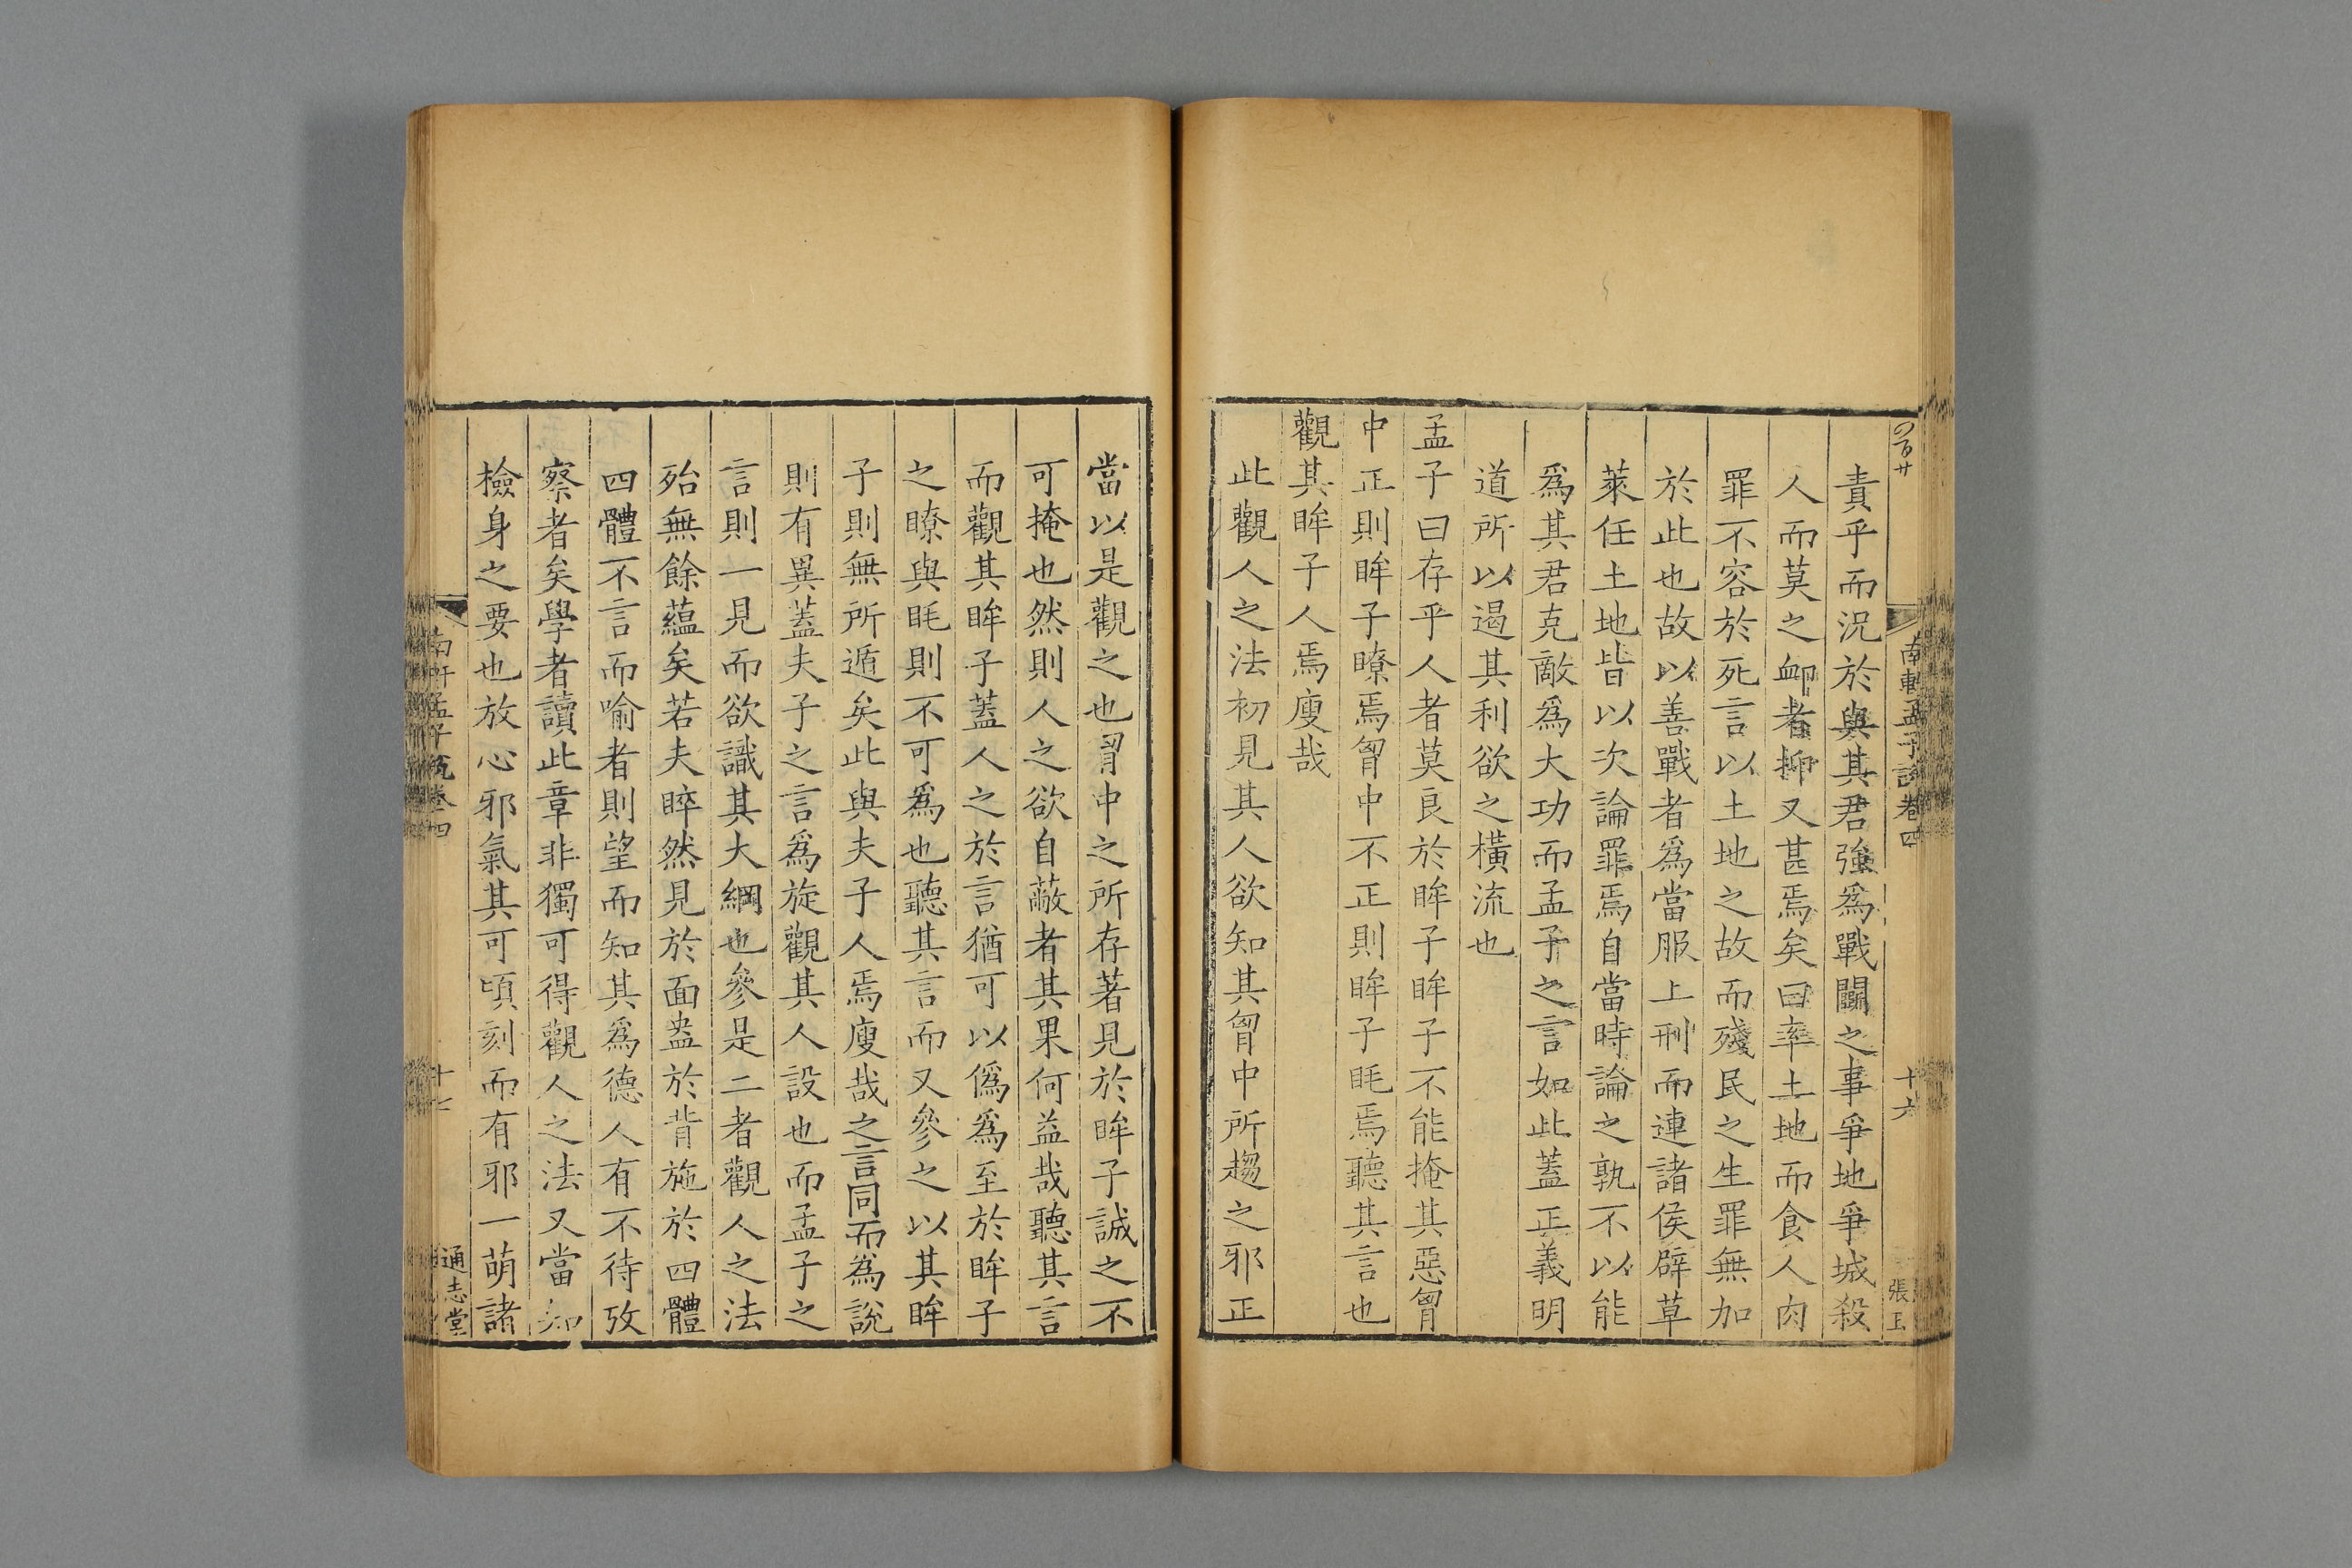 南軒孟子說卷四
十六
張玉
責乎而況於與其君強爲戰鬬之事爭地爭城殺
人而莫之卹者抑又甚焉矣曰率土地而食人肉
罪不容於死言以土地之故而殘民之生罪無加
於此也故以善戰者爲當服上刑而連諸侯辟草
萊任土地皆以次論罪焉自當時論之孰不以能
爲其君克敵爲大功而孟子之言如此蓋正義明
道所以遏其利欲之橫流也
孟子曰存乎人者莫良於眸子眸子不能掩其惡胷
中正則眸子瞭焉胷中不正則眸子眊焉聽其言也
觀其眸子人焉廋哉
此觀人之法初見其人欲知其胷中所趨之邪正
當以是觀之也胷中之所存著見於眸子誠之不
可掩也然則人之欲自蔽者其果何益哉聽其言
而觀其眸子蓋人之於言猶可以僞爲至於眸子
之瞭與眊則不可爲也聽其言而又參之以其眸
子則無所遁矣此與夫子人焉廋哉之言同而爲說
則有異蓋夫子之言爲旋觀其人設也而孟子之
言則一見而欲識其大綱也參是二者觀人之法
殆無餘蘊矣若夫睟然見於面盎於背施於四體
四體不言而喻者則望而知其爲德人有不待攷
察者矣學者讀此章非獨可得觀人之法又當知
檢身之要也放心邪氣其可頃刻而有邪一萌諸
南軒孟子說卷四
十七
通志堂